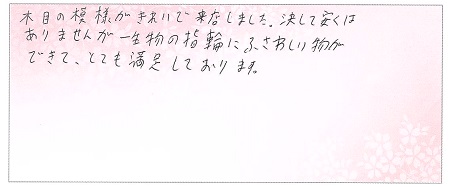 木目の模様がきれいで来店しました。決して安くは
ありませんが一生物の指輪にふさわしい物が
できて、とても満足しております。